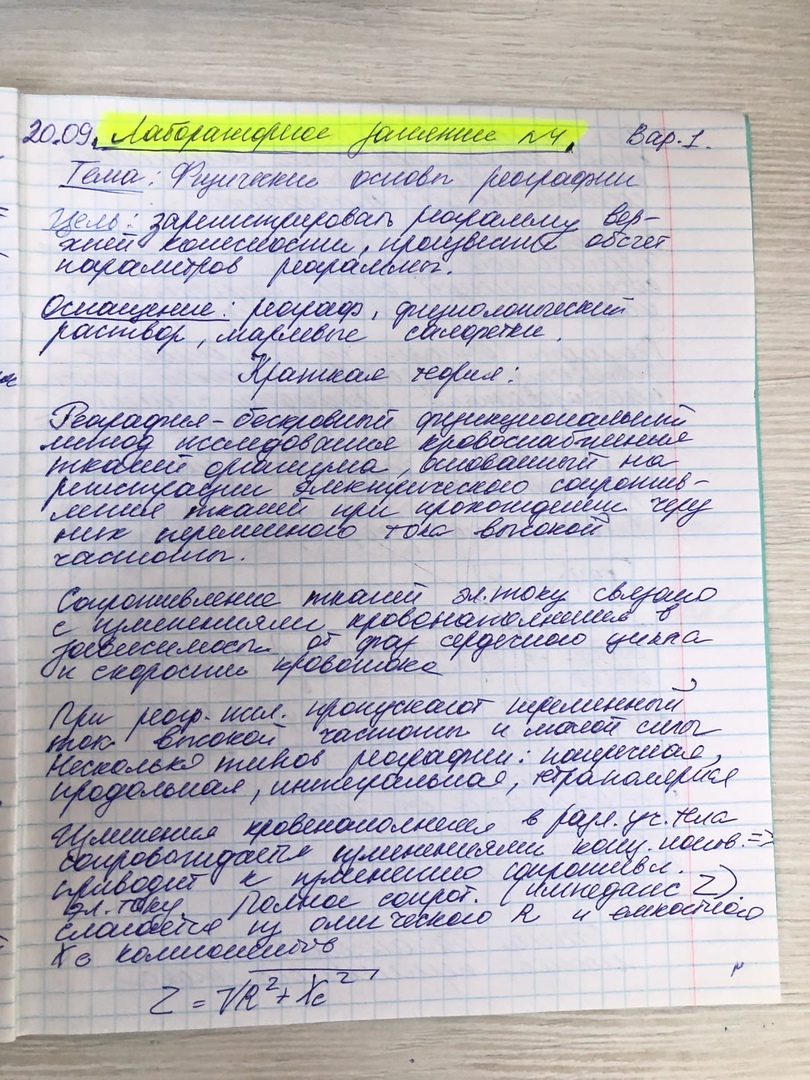 20.09. Лабораторное занятие №4. Вар.1.
Тема: Физические основы реографии
Цель: зарегистрировать реограмму вер-
хней конечности, произвести обсчет
параметров реограммы.
Оснащение: реограф, физиологический
раствор, марлевые салфетки.
Краткая теория:
Реография - бескровный функциональный
метод исследования кровоснабжения
тканей организма, основанный на
регистрации электрического сопротив-
ления тканей при прохождении через
них переменного тока высокой
частоты.
Сопротивление тканей эл.току связано
с изменениями кровонаполнения в
зависимости от фаз сердечного цикла
и скорости кровотока
При реогр. исл. пропускают переменный
ток высокой частоты и малой силы
Несколько типов реографии: поперечная,
продольная, интегральная, тетраполярная
Изменения кровенаполнения в разл. уч. тела
сопровождается изменениями конц. ионов. =>
приводит к изменению сопротивл.
эл. току Полное сопрот. (импеданс Z)
слагается из омического R и емкостного
Xc компонентов
Z = √R²+Xc²